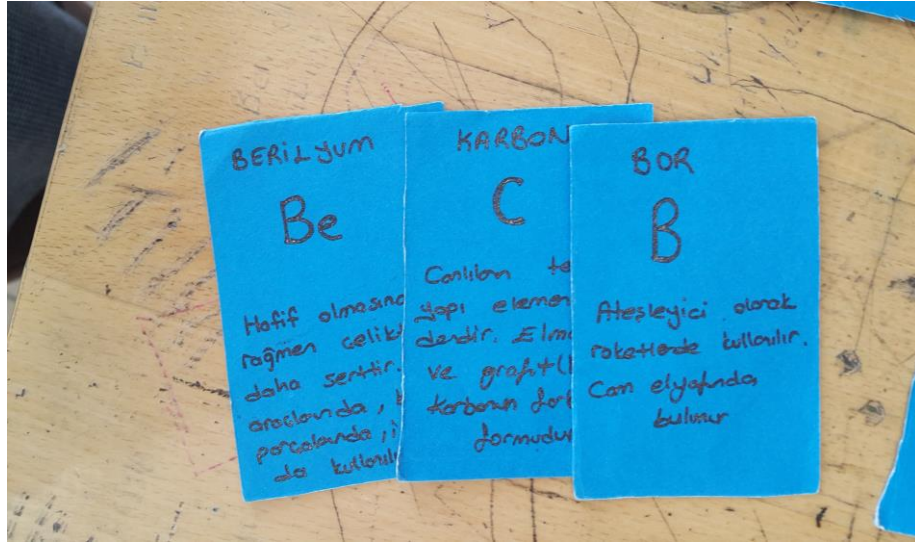 BERİLYUM
Be
Hafif olmasına
rağmen çelikt
daha serttir.
araçlarında,
parçalarında, i
da kullanılı
KARBON
C
Canlıların te
yapı elemen
derdir. Elma
ve grafit(
Karbonun fark
formudur
BOR
B
Ateşleyici olarak
roketlerde kullanılır.
Cam elyafında
bulunur